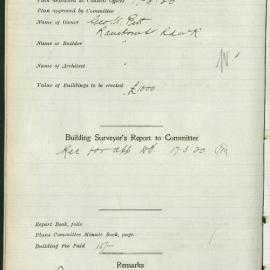 Plan deposited at Council Office 17-3-20
Plan approved by Committee
Name of Owner Geo. W.
Name of Builder "
Name of Architect "
Value of Buildings to be erected. £1000
Building Surveyor's Report to Committee
Rec for app 17-3-20
Report Book, folio
Plans Committee Minute Book, page
Building Fee Paid 15/-
Remarks